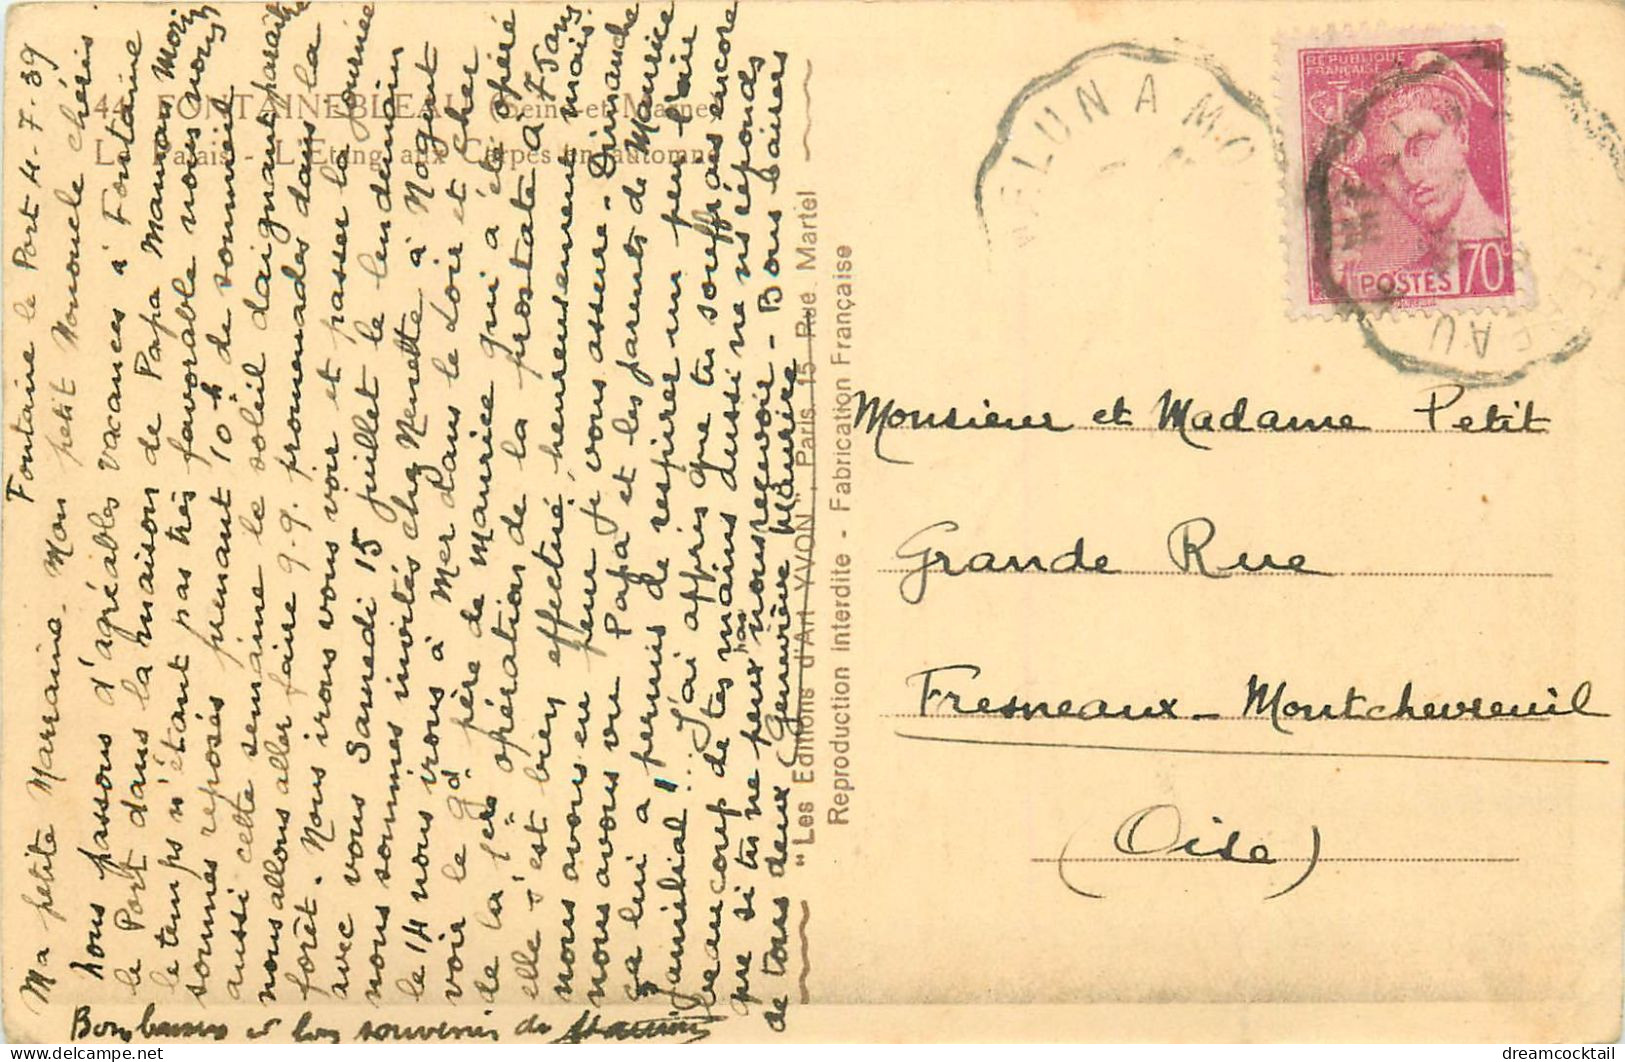 44. FONTAINEBLEAU (Seine-et-Marne)
Le Palais - L'Etang aux Carpes en automne
Fontaine le Port 4-7-39
Ma petite Marraine. Mon petit Nononcle chéris
Nous passons d'agréables vacances à Fontaine
le Port dans la maison de Papa Maman Mais
le temps n'étant pas très favorable nous nous
sommes reposés prenant 10h de sommeil
aussi cette semaine le soleil daignant paraître
nous allons aller faire q.q. promenades dans la
forêt. Nous irons vous voir et passer la journée
avec vous Samedi 15 juillet le lendemain
nous sommes invités chez Nenette à Nogent
le 14 nous irons à Mer dans le Loir et Cher
voir le gd père de Maurice qui a été opéré
de la 1ère opération de la prostate à 75ans
elle s'est bien effectué, heureusement mais
nous avons eu peur je vous assure. Dimanche
nous avons vu Papa et les parents de Maurice
ça lui a permis de respirer un peu l'air
familial!.. J'ai appris que tu souffrais encore
beaucoup de tes mains aussi ne ns réponds
pas si tu ne peux nous recevoir - Bons baisers
de tous deux Geneviève Maurice
Bons baisers et bon souvenir de
"Les Editions d'Art YVON", Paris, 15 Rue Martel
Reproduction interdite - Fabrication Française
MELUN A M.
EAU
REPUBLIQUE
FRANÇAISE
POSTES 70c
Monsieur et Madame Petit
Grande Rue
Fresneaux-Montchevreuil
(Oise)
dreamcocktail